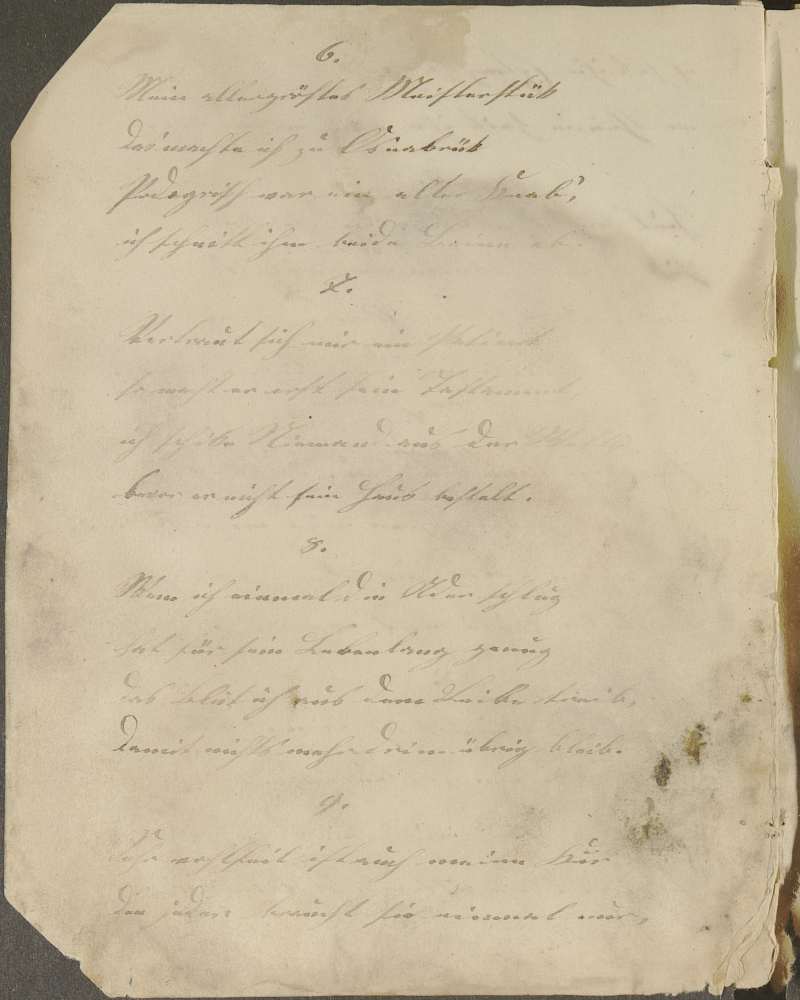 6.
Mein allergröstes Meisterstük
das machte ich zu Osnabrük
Podagrisch war ein alter Knab',
ich schnitt ihm beide Beine ab.
7.
Vertraut sich mir ein Patient
so mach er erst sein Testament,
ich schike Niemand aus der Welt
bevor er nicht sein Haus bestelt.
8.
Wem ich einmal die Ader schlug
hat für sein Lebenlang genug
das Blut ich aus dem Leibe treib,
damit nichts mehr drin übrig bleib.
9.
ist auch meine Kur
den jeder braucht sie einmal nur,